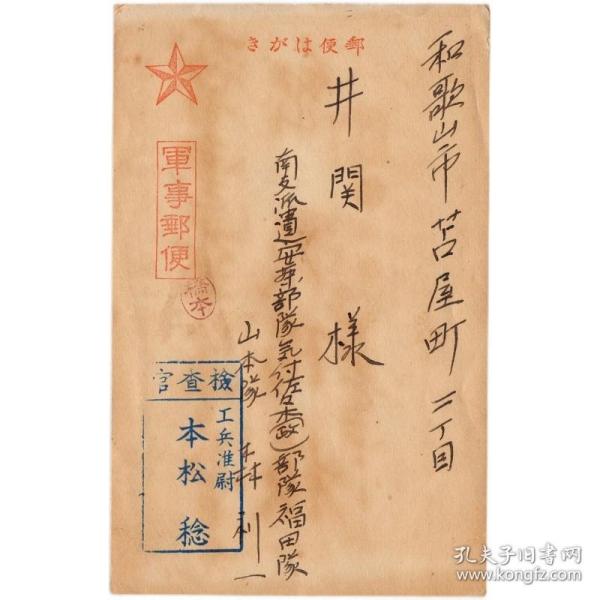 郵便はがき
軍事郵便
和歌山市苫屋町二丁目
井関様
南支派遣安藤部隊気付佐々木(政)部隊福田隊
山本隊 森利一
橋本
検査官
工兵准尉
本松稔
孔夫子旧书网
www.kongfz.com